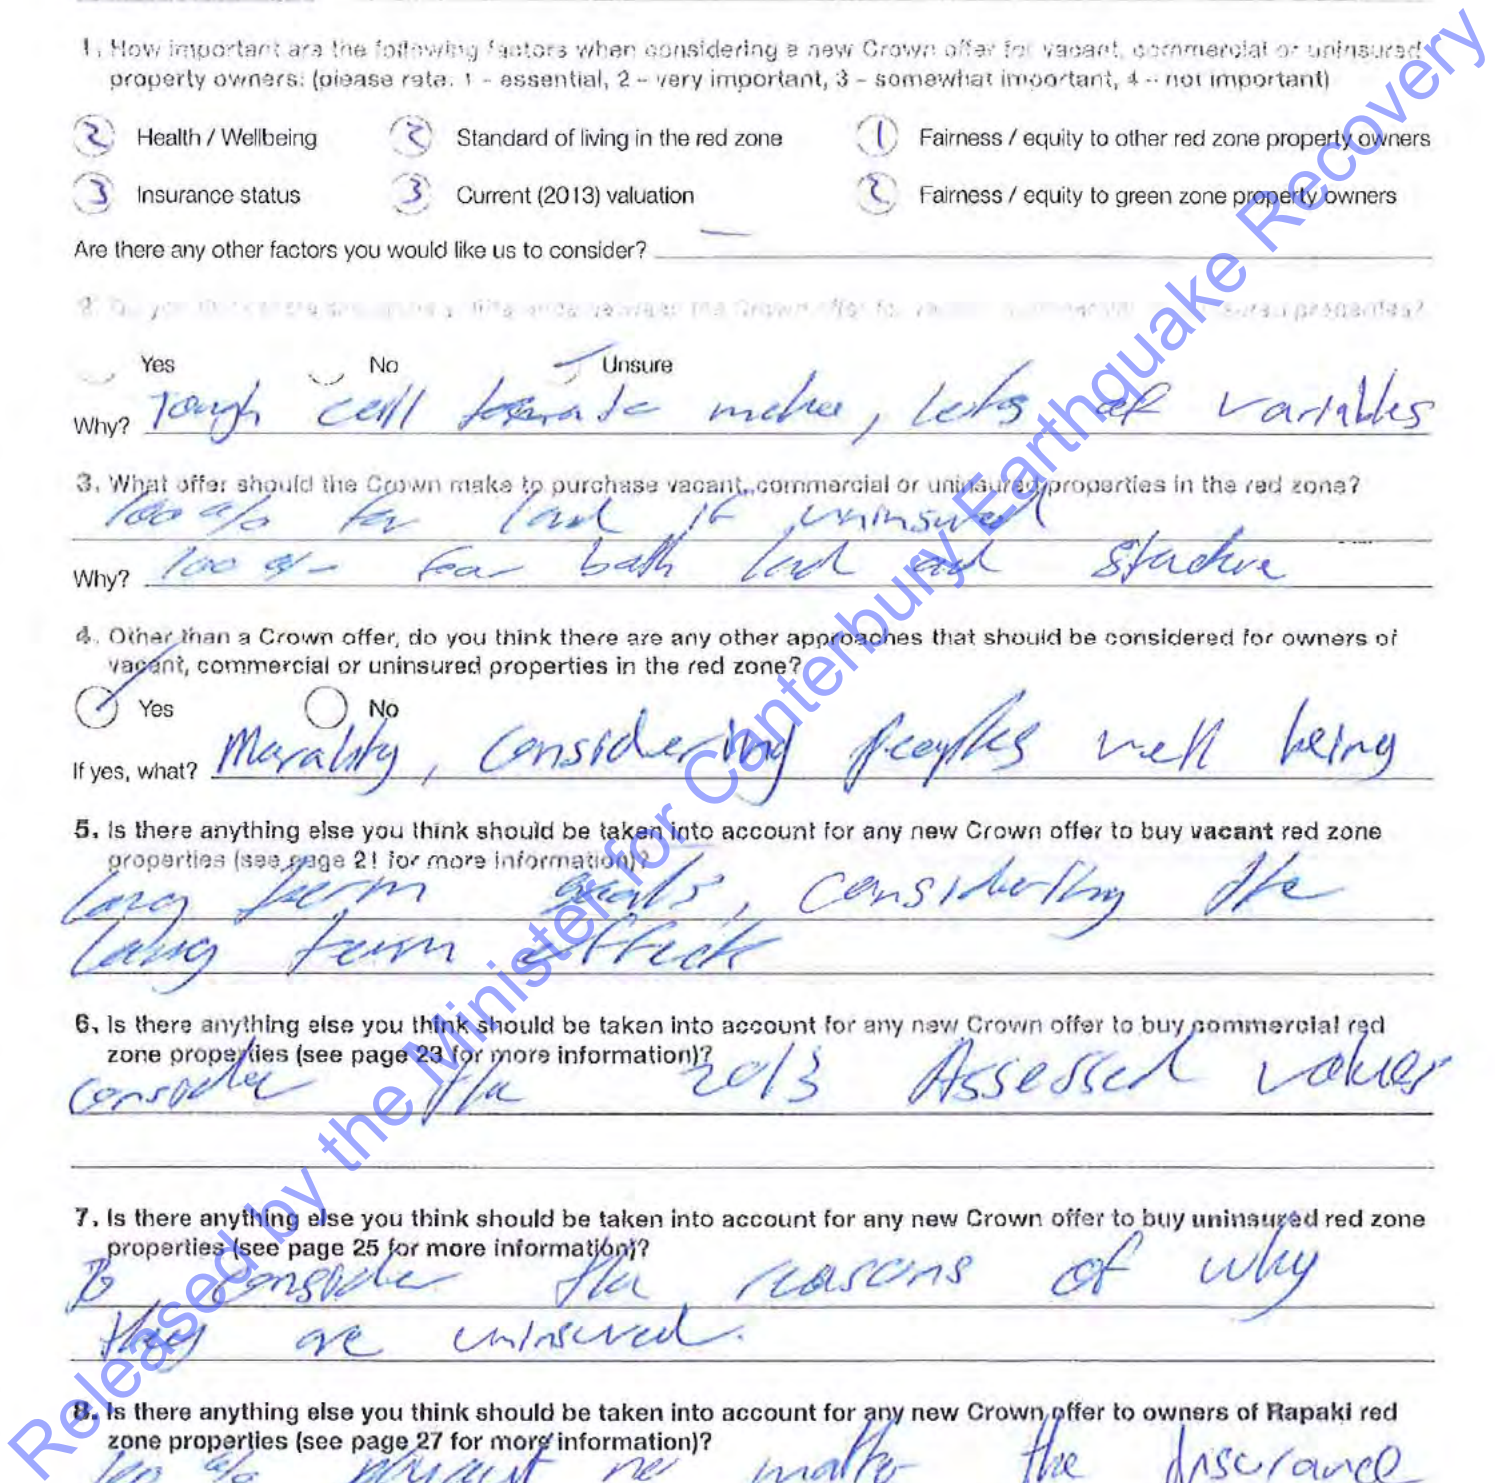 1. How important are the following factors when considering a new Crown offer for vacant, commercial or uninsured
property owners: (please rate: 1 - essential, 2 – very important, 3 – somewhat important, 4 – not important)
2 Health / Wellbeing 2 Standard of living in the red zone 1 Fairness / equity to other red zone property owners
3 Insurance status 3 Current (2013) valuation 2 Fairness / equity to green zone property owners
Are there any other factors you would like us to consider? —
2. Do you think there the Crown offer for properties?
Yes No Unsure
Why? Tough call to make, lots of variables
3. What offer should the Crown make to purchase vacant, commercial or uninsured properties in the red zone?
100 % for land if uninsured
Why? 100 % for both land and structure
4. Other than a Crown offer, do you think there are any other approaches that should be considered for owners of
vacant, commercial or uninsured properties in the red zone?
Yes No
If yes, what? Morality, considering peoples well being
5. Is there anything else you think should be taken into account for any new Crown offer to buy vacant red zone
properties (see page 21 for more information)?
long term goals, considering the
long term effect
6. Is there anything else you think should be taken into account for any new Crown offer to buy commercial red
zone properties (see page 23 for more information)?
consider the 2013 Assessed values
7. Is there anything else you think should be taken into account for any new Crown offer to buy uninsured red zone
properties (see page 25 for more information)?
To consider the reasons of why
they are uninsured.
8. Is there anything else you think should be taken into account for any new Crown offer to owners of Rapaki red
zone properties (see page 27 for more information)?
100 % no matter the insurance
Released by the Minister for Canterbury Earthquake Recovery